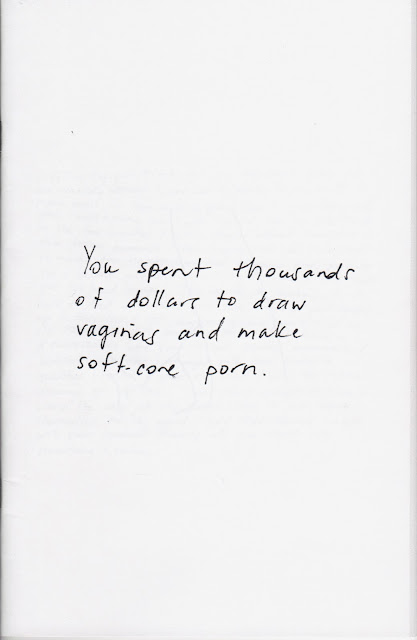 You spent thousands
of dollars to draw
vaginas and make
soft-core porn.